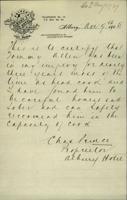 This is to certify that
Tommy Allen has been
in our employ for nearly
three years most of the
time as head cook and
I have found him to
be careful honest and
sober and can safely
recommend him in the
capacity of cook
Chas Prince
Proprietor
Albury Hotel